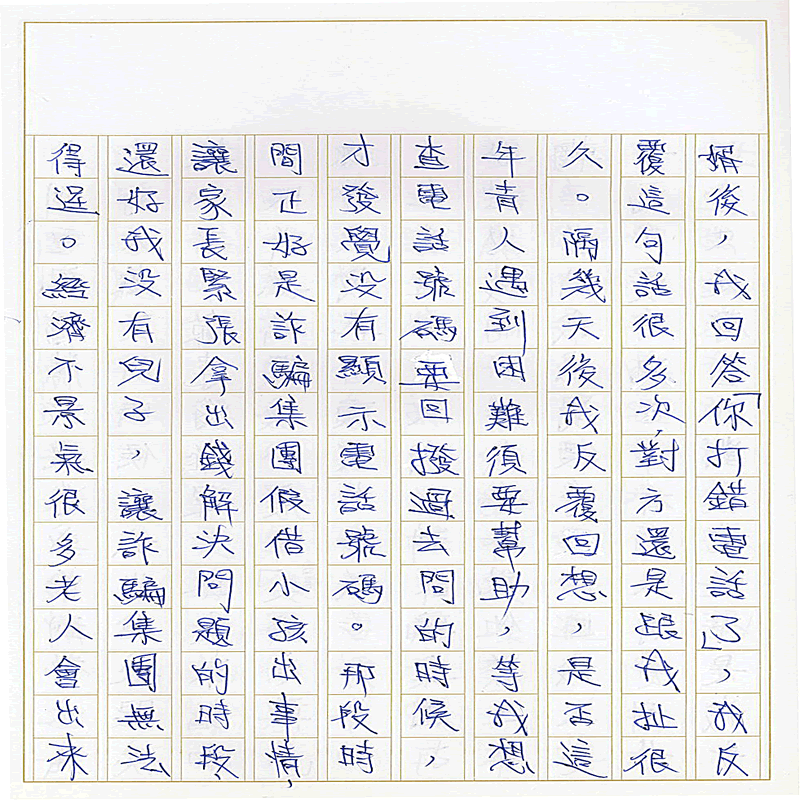 婿後，我回答「你打錯電話了」，我反
覆這句話很多次，對方還是跟我扯很
久。隔幾天後我反覆回想，是否這
年青人遇到困難須要幫助，等我想
查電話號碼要回撥過去問的時候，
才發覺沒有顯示電話號碼。那段時
間正好是詐騙集團假借小孩出事情，
讓家長緊張拿出錢解決問題的時段，
還好我沒有兒子，讓詐騙集團無法
得逞。經濟不景氣很多老人會出來